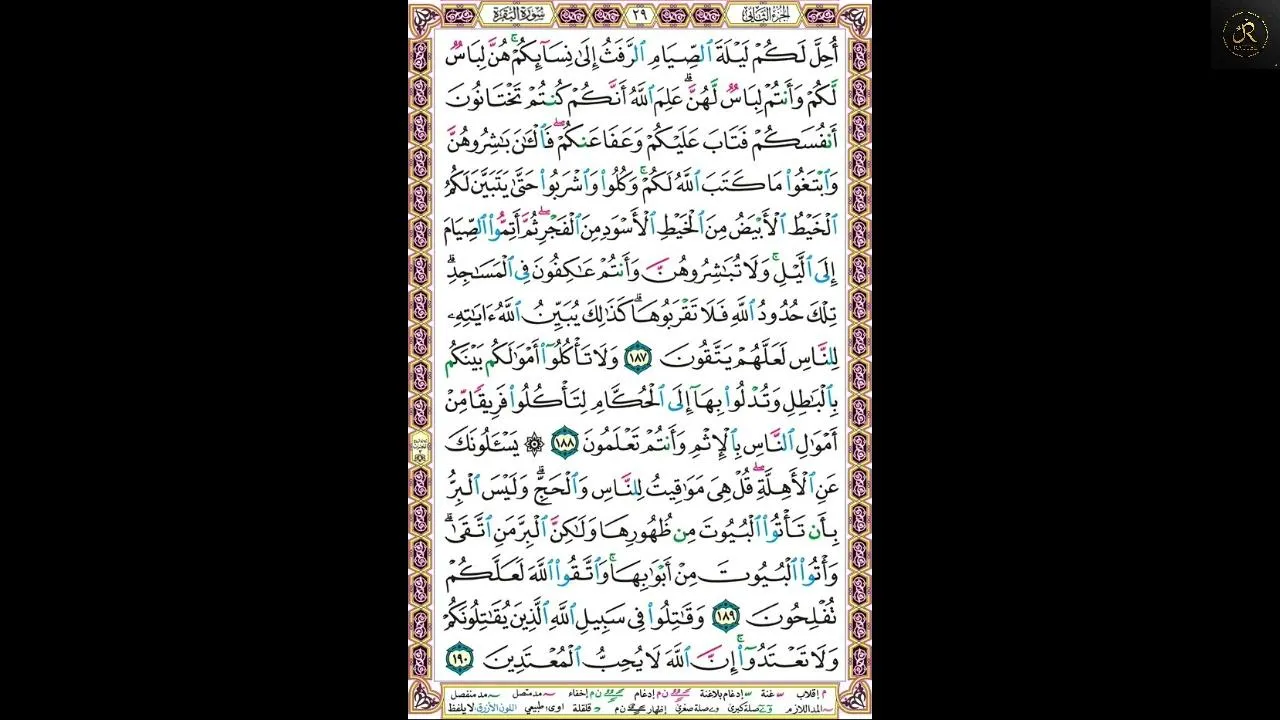 سُورَةُ البَقَرَةِ ٢٩ الجُزْءُ الثَّانِي
أُحِلَّ لَكُمْ لَيْلَةَ ٱلصِّيَامِ ٱلرَّفَثُ إِلَىٰ نِسَآئِكُمْ ۚ هُنَّ لِبَاسٌ
لَّكُمْ وَأَنتُمْ لِبَاسٌ لَّهُنَّ ۗ عَلِمَ ٱللَّهُ أَنَّكُمْ كُنتُمْ تَخْتَانُونَ
أَنفُسَكُمْ فَتَابَ عَلَيْكُمْ وَعَفَا عَنكُمْ ۖ فَٱلْـَٰٔنَ بَٰشِرُوهُنَّ
وَٱبْتَغُوا۟ مَا كَتَبَ ٱللَّهُ لَكُمْ ۚ وَكُلُوا۟ وَٱشْرَبُوا۟ حَتَّىٰ يَتَبَيَّنَ لَكُمُ
ٱلْخَيْطُ ٱلْأَبْيَضُ مِنَ ٱلْخَيْطِ ٱلْأَسْوَدِ مِنَ ٱلْفَجْرِ ۖ ثُمَّ أَتِمُّوا۟ ٱلصِّيَامَ
إِلَى ٱلَّيْلِ ۚ وَلَا تُبَٰشِرُوهُنَّ وَأَنتُمْ عَٰكِفُونَ فِى ٱلْمَسَٰجِدِ ۗ
تِلْكَ حُدُودُ ٱللَّهِ فَلَا تَقْرَبُوهَا ۗ كَذَٰلِكَ يُبَيِّنُ ٱللَّهُ ءَايَٰتِهِۦ
لِلنَّاسِ لَعَلَّهُمْ يَتَّقُونَ ١٨٧ وَلَا تَأْكُلُوٓا۟ أَمْوَٰلَكُم بَيْنَكُم
بِٱلْبَٰطِلِ وَتُدْلُوا۟ بِهَآ إِلَى ٱلْحُكَّامِ لِتَأْكُلُوا۟ فَرِيقًا مِّنْ
أَمْوَٰلِ ٱلنَّاسِ بِٱلْإِثْمِ وَأَنتُمْ تَعْلَمُونَ ١٨٨ ۞ يَسْـَٔلُونَكَ
عَنِ ٱلْأَهِلَّةِ ۖ قُلْ هِىَ مَوَٰقِيتُ لِلنَّاسِ وَٱلْحَجِّ ۗ وَلَيْسَ ٱلْبِرُّ
بِأَن تَأْتُوا۟ ٱلْبُيُوتَ مِن ظُهُورِهَا وَلَٰكِنَّ ٱلْبِرَّ مَنِ ٱتَّقَىٰ ۗ
وَأْتُوا۟ ٱلْبُيُوتَ مِنْ أَبْوَٰبِهَا ۚ وَٱتَّقُوا۟ ٱللَّهَ لَعَلَّكُمْ
تُفْلِحُونَ ١٨٩ وَقَٰتِلُوا۟ فِى سَبِيلِ ٱللَّهِ ٱلَّذِينَ يُقَٰتِلُونَكُمْ
وَلَا تَعْتَدُوٓا۟ ۚ إِنَّ ٱللَّهَ لَا يُحِبُّ ٱلْمُعْتَدِينَ ١٩٠
م إقلاب غنة إدغام بلاغنة ن م إدغام ن م إخفاء مد متصل مد منفصل
المد اللازم صلة كبرى صلة صغرى إظهار ن م قلقلة اوى: طبيعي اللون الأزرق لا يلفظ